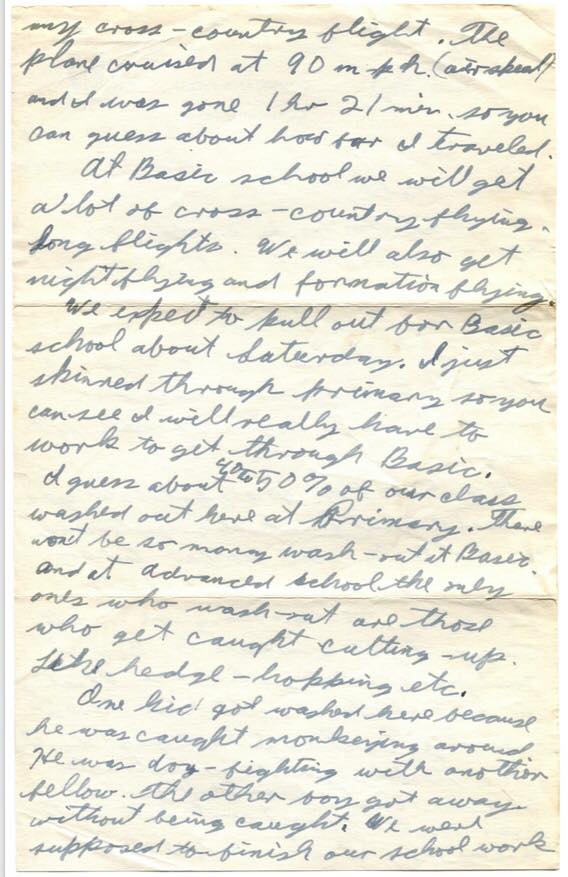 my cross-country flight. The
plane cruised at 90 m.p.h. (air speed)
and I was gone 1 hr 21 min. so you
can guess about how far I traveled.
At Basic school we will get
a lot of cross-country flying.
Long flights. We will also get
night flying and formation flying.
We expect to pull out for Basic
school about Saturday. I just
skinned through primary so you
can see I will really have to
work to get through Basic.
I guess about 40 to 50% of our class
washed out here at Primary. There
wont be so many wash-out at Basic
and at advanced school the only
ones who wash-out are those
who get caught cutting-up.
Like hedge-hopping etc.
One kid got washed here because
he was caught monkeying around
He was dog-fighting with another
fellow. The other boy got away
without being caught. We were
supposed to finish our school work